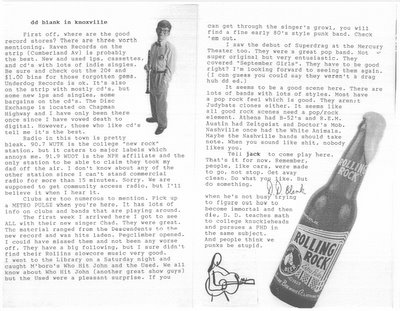 dd blank in knoxville
First off, where are the good
record stores? There are three worth
mentioning. Raven Records on the
strip (Cumberland Av) is probably
the best. New and used lps, cassettes,
and cd's with lots of indie singles.
Be sure and check out the 10¢ and
$1.00 bins for those forgotten gems.
Underdog Records is ok. It's also
on the strip with mostly cd's, but
some new lps and singles, some
bargains on the cd's. The Disc
Exchange is located on Chapman
Highway and I have only been there
once since I have vowed death to
digital. However, those who like cd's
tell me it's the best.
Radio in this town is pretty
bleak. 90.7 WUTK is the college "new rock"
station, but it caters to major labels which
annoys me. 91.9 WUOT is the NPR affiliate and the
only station to be able to claim they took my
dad off the air. I don't know about any of the
other station since I can't stand commercial
radio for more than 15 minutes. Sorry. We are
supposed to get community access radio, but I'll
believe it when I hear it.
Clubs are too numerous to mention. Pick up
a METRO PULSE when you're here. It has lots of
info on clubs and bands that are playing around.
The first week I arrived here I got to see
ALL with their new singer Chad. They were great.
The material ranged from the Descendents to the
new record and was hits laden. Pegclimber opened.
I could have missed them and not been any worse
off. They have a big following, but I sure didn't
find their Rollins slowcore music very good.
I went to the Library on a Saturday night and
caught M'boro's Who Hit John and the Used. We all
know about Who Hit John (another great show guys)
but the Used were a pleasant surprise. If you
can get through the singer's growl, you will
find a fine early 80's style punk band. Check
'em out.
I saw the debut of Superdrag at the Mercury
Theater too. They were a great pop band. Not
super original but very enthusiastic. They
covered "September Girls". They have to be good
right? I'm looking forward to seeing them again.
(I can guess you could say they weren't a drag
huh dd ed.)
It seems to be a good scene here. There are
lots of bands with lots of styles. Most have
a pop rock feel which is good. They aren't
Judybats clones either. It seems like
all good rock scenes need a pop/rock
element. Athens had B-52's and R.E.M.
Austin had Zeitgeist and Doctor's Mob.
Nashville once had the White Animals.
Maybe the Nashville bands should take
note. When you sound like shit, nobody
likes you.
Tell jack to come play here.
That's it for now. Remember,
people, like cars, were made
to go, not stop. Get away
clean. Do what you like. But
do something.
D.D. Blank
when he's not busy trying
to figure out how to
become immortal and then
die, D. D. teaches math
to college knuckleheads
and pursues a PHD in
the same subject.
And people think we
punks be stupid.
ROLLING
ROCK